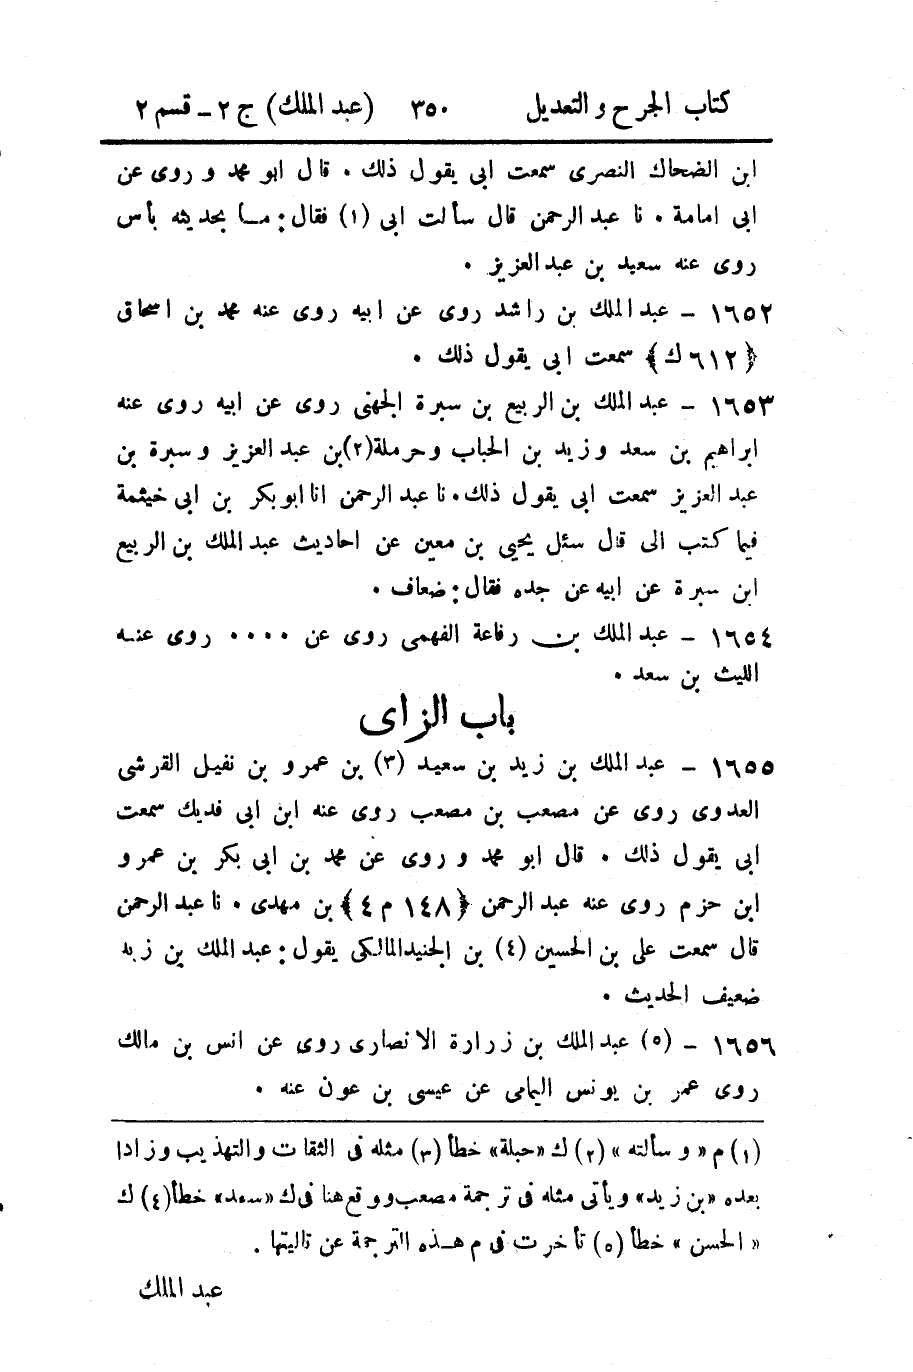 كتاب الجرح والتعديل ٣٥٠ (عبد الملك) ج ٢ - قسم ٢
ابن الضحاك النصرى سمعت ابى يقول ذلك . قال ابو محمد وروى عن
ابى امامة . نا عبد الرحمن قال سألت ابى (١) فقال: ما بحديثه بأس
روى عنه سعيد بن عبد العزيز .
١٦٥٢ - عبد الملك بن راشد روى عن ابيه روى عنه محمد بن اسحاق
﴿٦١٢ك﴾ سمعت ابى يقول ذلك .
١٦٥٣ - عبد الملك بن الربيع بن سبرة الجهنى روى عن ابيه روى عنه
ابراهيم بن سعد وزيد بن الحباب وحرملة(٢)بن عبد العزيز وسبرة بن
عبد العزيز سمعت ابى يقول ذلك. نا عبد الرحمن انا ابو بكر بن ابى خيثمة
فيما كتب الى قال سئل يحيى بن معين عن احاديث عبد الملك بن الربيع
ابن سبرة عن ابيه عن جده فقال: ضعاف .
١٦٥٤ - عبد الملك بن رفاعة الفهمى روى عن .... روى عنه
الليث بن سعد .
باب الزاى
١٦٥٥ - عبد الملك بن زيد بن سعيد (٣) بن عمرو بن نفيل القرشى
العدوى روى عن مصعب بن مصعب روى عنه ابن ابى فديك سمعت
ابى يقول ذلك . قال ابو محمد وروى عن محمد بن ابى بكر بن عمرو
ابن حزم روى عنه عبد الرحمن ﴿١٤٨ م ٤﴾ بن مهدى . نا عبد الرحمن
قال سمعت على بن الحسين (٤) بن الجنيد المالكى يقول: عبد الملك بن زيد
ضعيف الحديث .
١٦٥٦ - (٥) عبد الملك بن زرارة الانصارى روى عن انس بن مالك
روى عمر بن يونس اليمامى عن عيسى بن عون عنه .
(١) م «وسألته» (٢) ك «حبلة» خطأ (٣) مثله فى الثقات والتهذيب وزادا
بعده «بن زيد» ويأتى مثله فى ترجمة مصعب ووقع هنا فى ك «سعد» خطأ (٤) ك
«الحسن» خطأ (٥) تأخرت فى م هذه الترجمة عن تاليتها .
عبد الملك